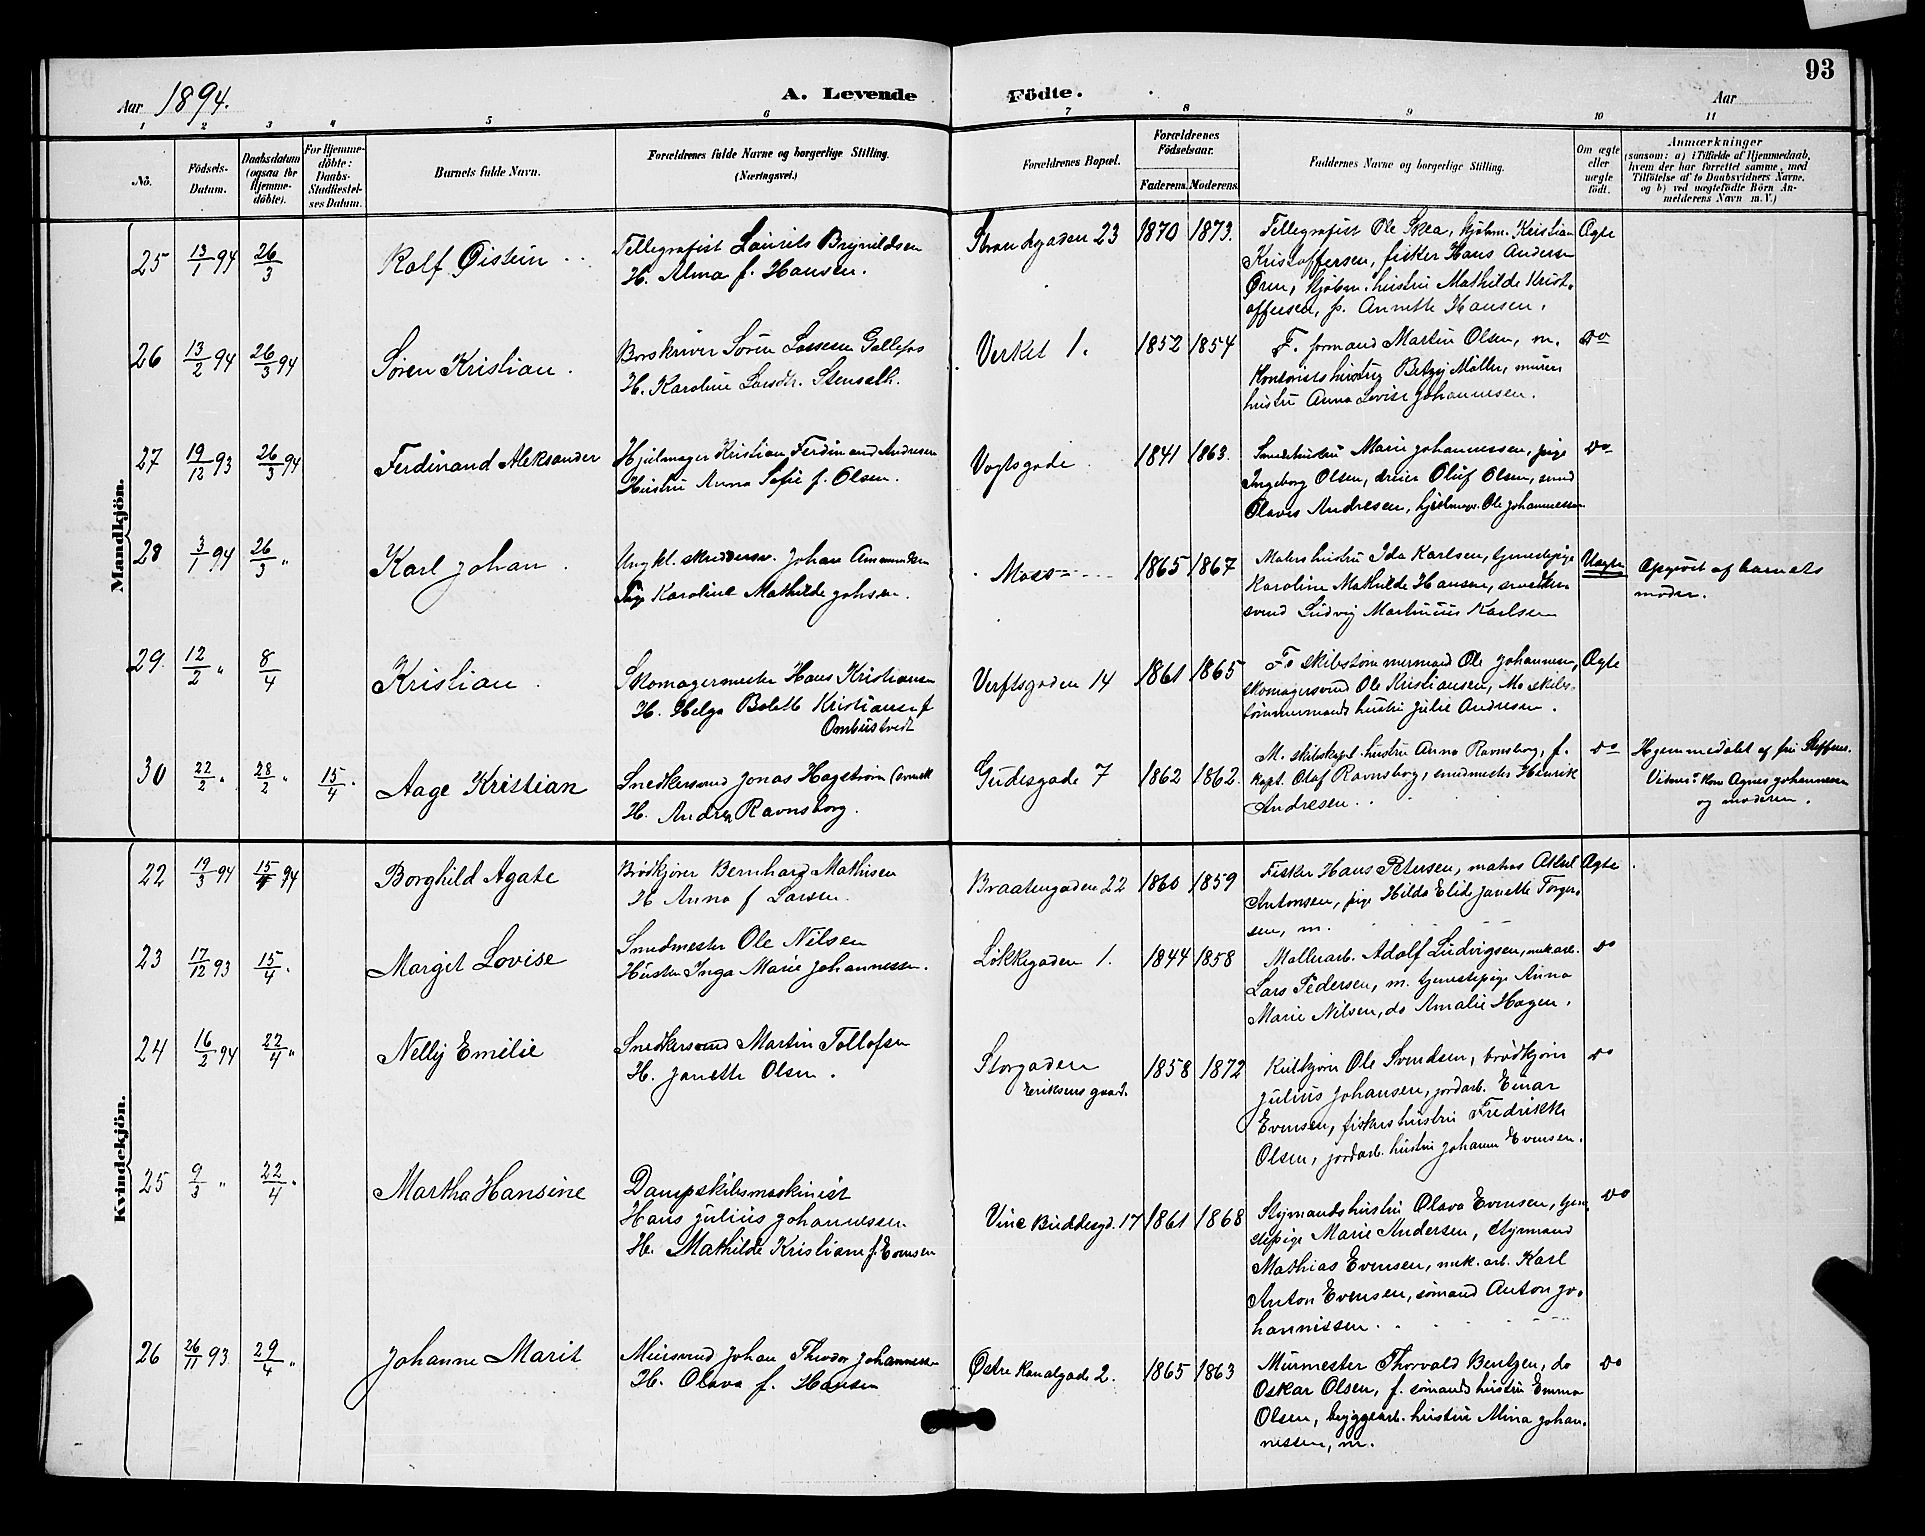 93
Aar 1894. A. Levende Födte. Aar
1 2 3 4 5 6 7 8 9 10 11
No. Födsels-Datum. Daabsdatum (ogsaa for Hjemme-döbte). For Hjemme-döbte: Daabs-Stadfæstel-ses Datum. Barnets fulde Navn. Forældrenes fulde Navne og borgerlige Stilling. (Næringsvei.) Forældrenes Bopæl. Forældrenes Födselsaar. Faderens. Moderens. Faddernes Navne og borgerlige Stilling. Om ægte eller uægte födt. Anmærkninger
(saasom: a) i Tilfælde af Hjemmedaab, hvem der har forrettet samme, med Tilföielse af to Daabsvidners Navne, og b) ved uægtefödte Börn An-melderens Navn m. V.)
Mandkjön.
25 13/1 94 26/3 Rolf Øistein Tellegrafist Laurits Brynildsen
H. Alma f. Hansen.
Strandgaden 23 1870 1873. Tellegrafist Ole Skea, Kjöbm. Kristian
Kristoffersen, fisker Hans Andersen
Øren, Kjöbm. hustru Mathilde Krist-
offersen, p. Annette Hansen.
Ægte
26 13/2 94 26/3 94 Sören Kristian. Sören Lassesen
H. Karoline Larsdtr.
Verket 1. 1852 1854 F. formand Martin Olsen, m.
Kontorists hustru Betzy Möller, murer
hustru Anna Lovise Johannesen.
Do
27 19/12 93 26/3 94 Ferdinand Aleksander Hjulmager Kristian Ferdinand Andresen
Hustru Anna Sofie f. Olsen.
Vogtsgade. 1841 1863. Smedehustru Marie Johannessen, pige
Ingeborg Olsen, dreier Oluf Olsen, smed
Olavus Andresen, hjulmager Ole Johannessen
Do
28 3/1 94 26/3 " Karl Johan. Ungkl. skreddersv. Johan Amundsen
Pige Karoline Mathilde Johsen.
Moss 1865 1867 Malers hustru Ida Karlsen, tjenestepige
Karoline Mathilde Hansen, snedker
svend Ludvig Martinius Karlsen
Uægte Opgivet af barnets
moder.
29. 12/2 " 8/4 Kristian. Skomagermester Hans Kristiansen
H. Helga Bolette Kristiansen f
Ombustvedt
Verftsgaden 14 1861 1865 Fo skibstömmermand Ole Johannesen,
skomagersvend Ole Kristiansen, Mo skibs-
tömmermands hustru Julie Andresen.
Ægte
30 22/2 " 28/2 " 15/4 . Aage Kristian Snedkersvend Jonas Hagström (svensk
H. Andrea Ravnsborg.
Gudesgade 7 1862 1862. M. skibskapt. hustru Anna Ravnsborg, f.
kapt. Olaf Ravnsborg, smedmester Henrik
Andresen.
Do Hjemmedöbt af fru Steffens.
Vidner: Kone Agnes Johannesen
og moderen.
Kvindekjön.
22 19/3 94 15/4 94 Borghild Agate Brödkjörer Bernhard Mathisen
H Anna f Larsen.
Braatengaden 22 1860 1859 Fisker Hans Petersen, matros Aksel
Antonsen, pige Hilda Elide Janette Torger-
sen, m.
Ægte
23 17/12 93 15/4 . Margit Lovise Smedmester Ole Nilsen
Hustru Inga Marie Johannessen.
Løkkegaden 1. 1844 1858 Möllerarb. Adolf Ludvigsen, mek arb.
Lars Pedersen, m. tjenestepige Anna
Marie Nilsen, do Amalie Hagen.
Do
24 16/2 94 22/4 " Nelly Emilie Snedkersvend Martin Tollofsen
H. Janette Olsen.
Storgaden
Eriksens gaard.
1858 1872 Kulkjörer Ole Svendsen, brödkjörer
Julius Johansen, jordarb. Einar
Evensen, fiskers hustru Fredrikke
Olsen, jordarb. hustru Johanne Evensen.
Do
25 9/3 " 22/4 " Martha Hansine Dampskibsmaskinist
Hans Julius Johannessen
H. Mathilde Kristiane f. Evensen
Vine Buddesgd. 17 1861 1868 Styrmands hustru Olava Evensen, tjene-
stepige Marie Andersen, styrmand
Mathias Evensen, mek. arb. Karl
Anton Evensen, sömand Anton Jo-
hannissen.
Do
26 26/11 93 29/4 " Johanne Marit Mursvend Johan Theodor Johannessen
H. Olava f. Hansen
Østre Kanalgade 2. 1865 1863 Murmester Thorvald Bentzen, do
Oskar Olsen, f. sömands hustru Emma
Olsen, bryggearb. hustru Mina Johan-
nessen, m.
Do